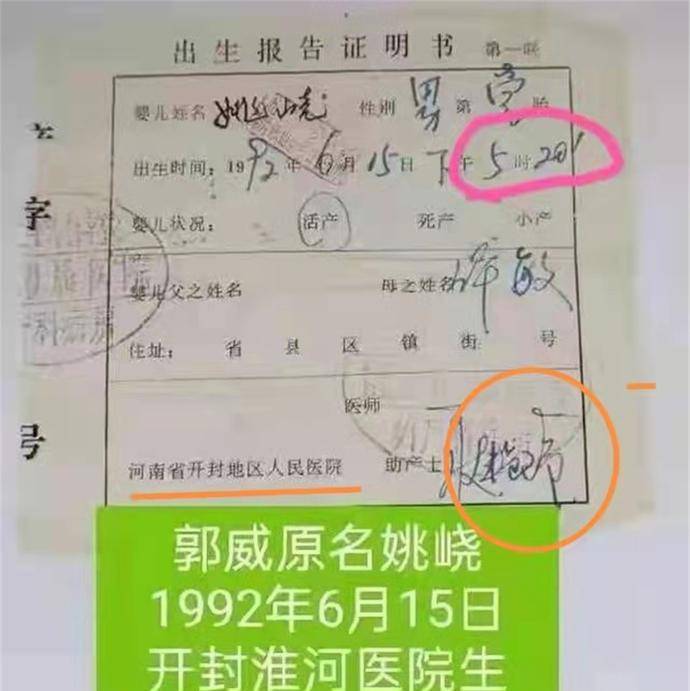 出生报告证明书 第一联
婴儿姓名 姚峣 性别 男 第 壹 胎
出生时间：1992年6月15日下午5时20'
婴儿状况： 活产 死产 小产
字
婴儿父之姓名 母之姓名 许敏
产科病房
住址： 省 县 区 镇 街 号
医师
号
河南省开封地区人民医院 助产士
郭威原名姚峣
1992年6月15日
开封淮河医院生